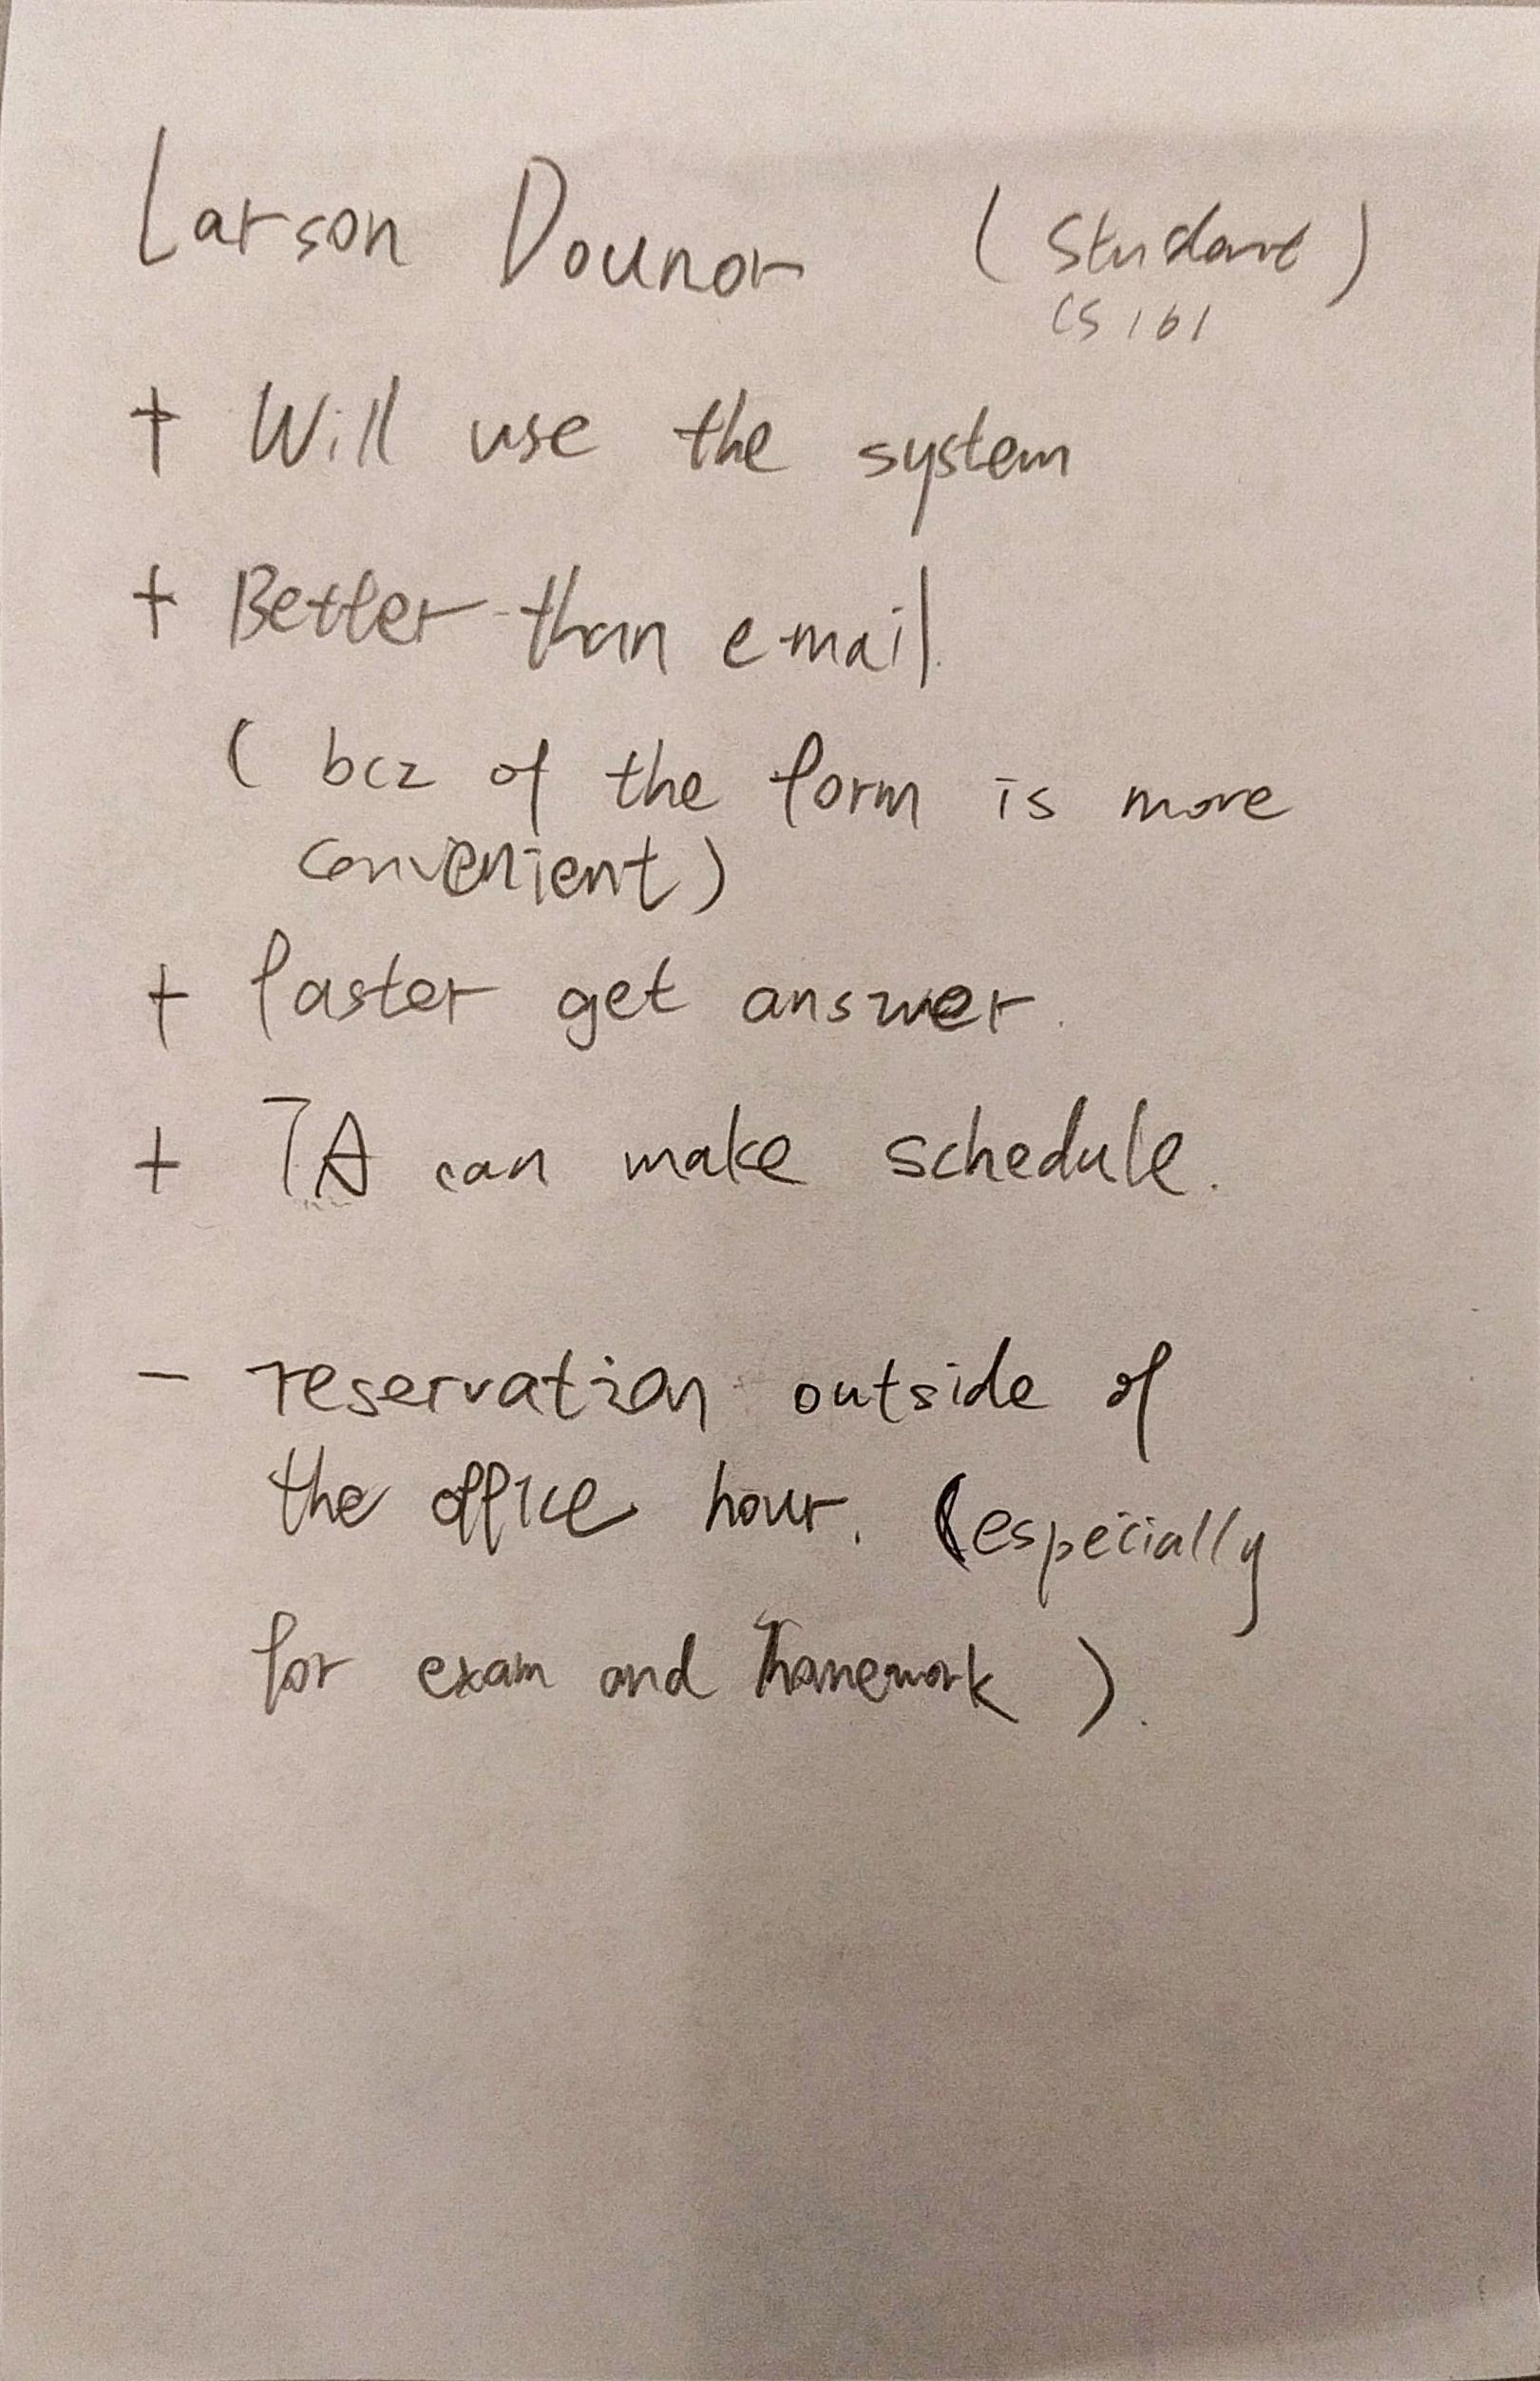 Larson Dounor (Student)
CS 161
+ Will use the system
+ Better than email.
( bcz of the form is more
convenient)
+ faster get answer.
+ TA can make schedule.
- reservation outside of
the office hour. (especially
for exam and homework ).